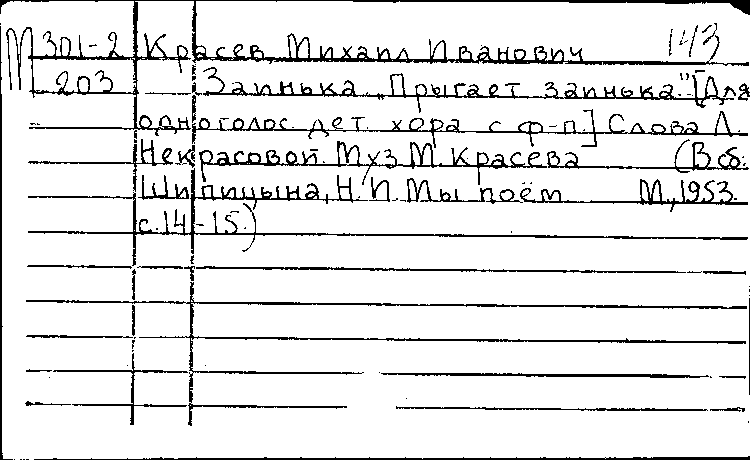 М 301-2 Красев, Михаил Иванович 143
203 Заинька „Прыгает заинька." [Для
одноголос. дет. хора с ф-п.] Слова Л.
Некрасовой. Муз М. Красева (В сб.
Шипицына, Н. П. Мы поём М., 1953.
с. 14-15.)